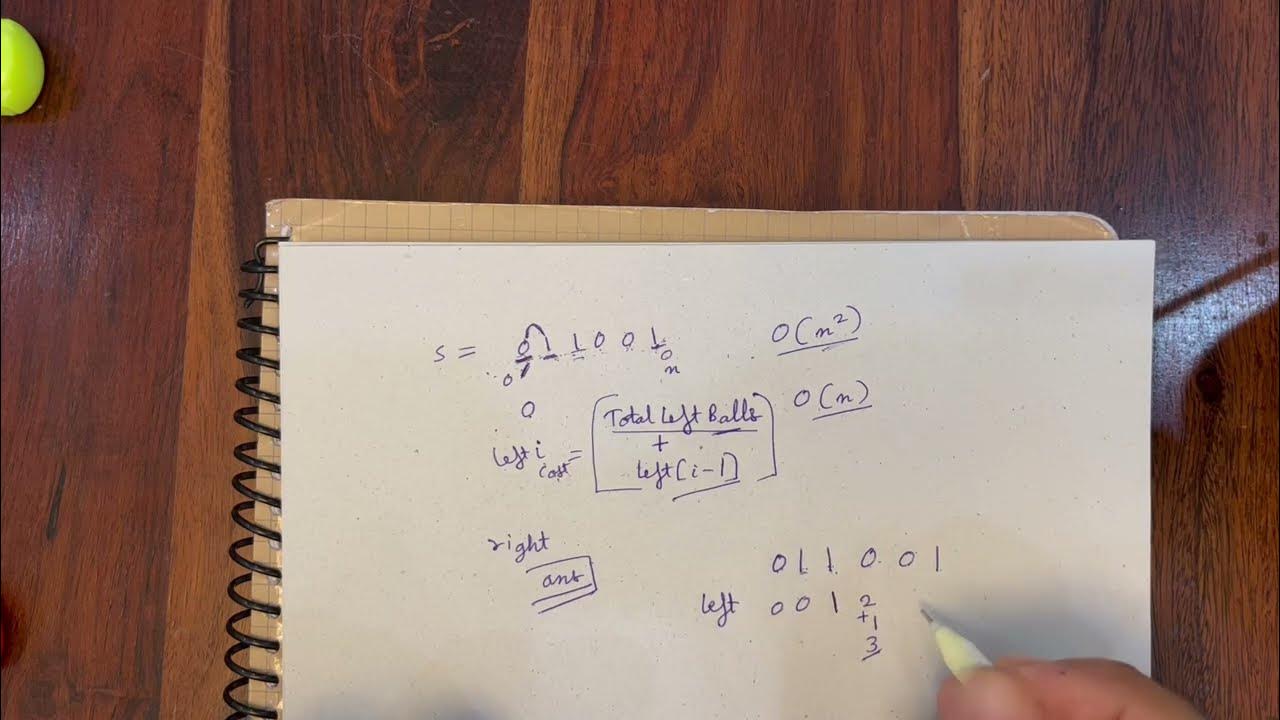 s = 0 1 1 0 0 1 O(n²)
0 0 n
0 Total Left Balls O(n)
left i cost = +
left[i-1]
right
ans
0 1 1 0 0 1
left 0 0 1 2
+1
3